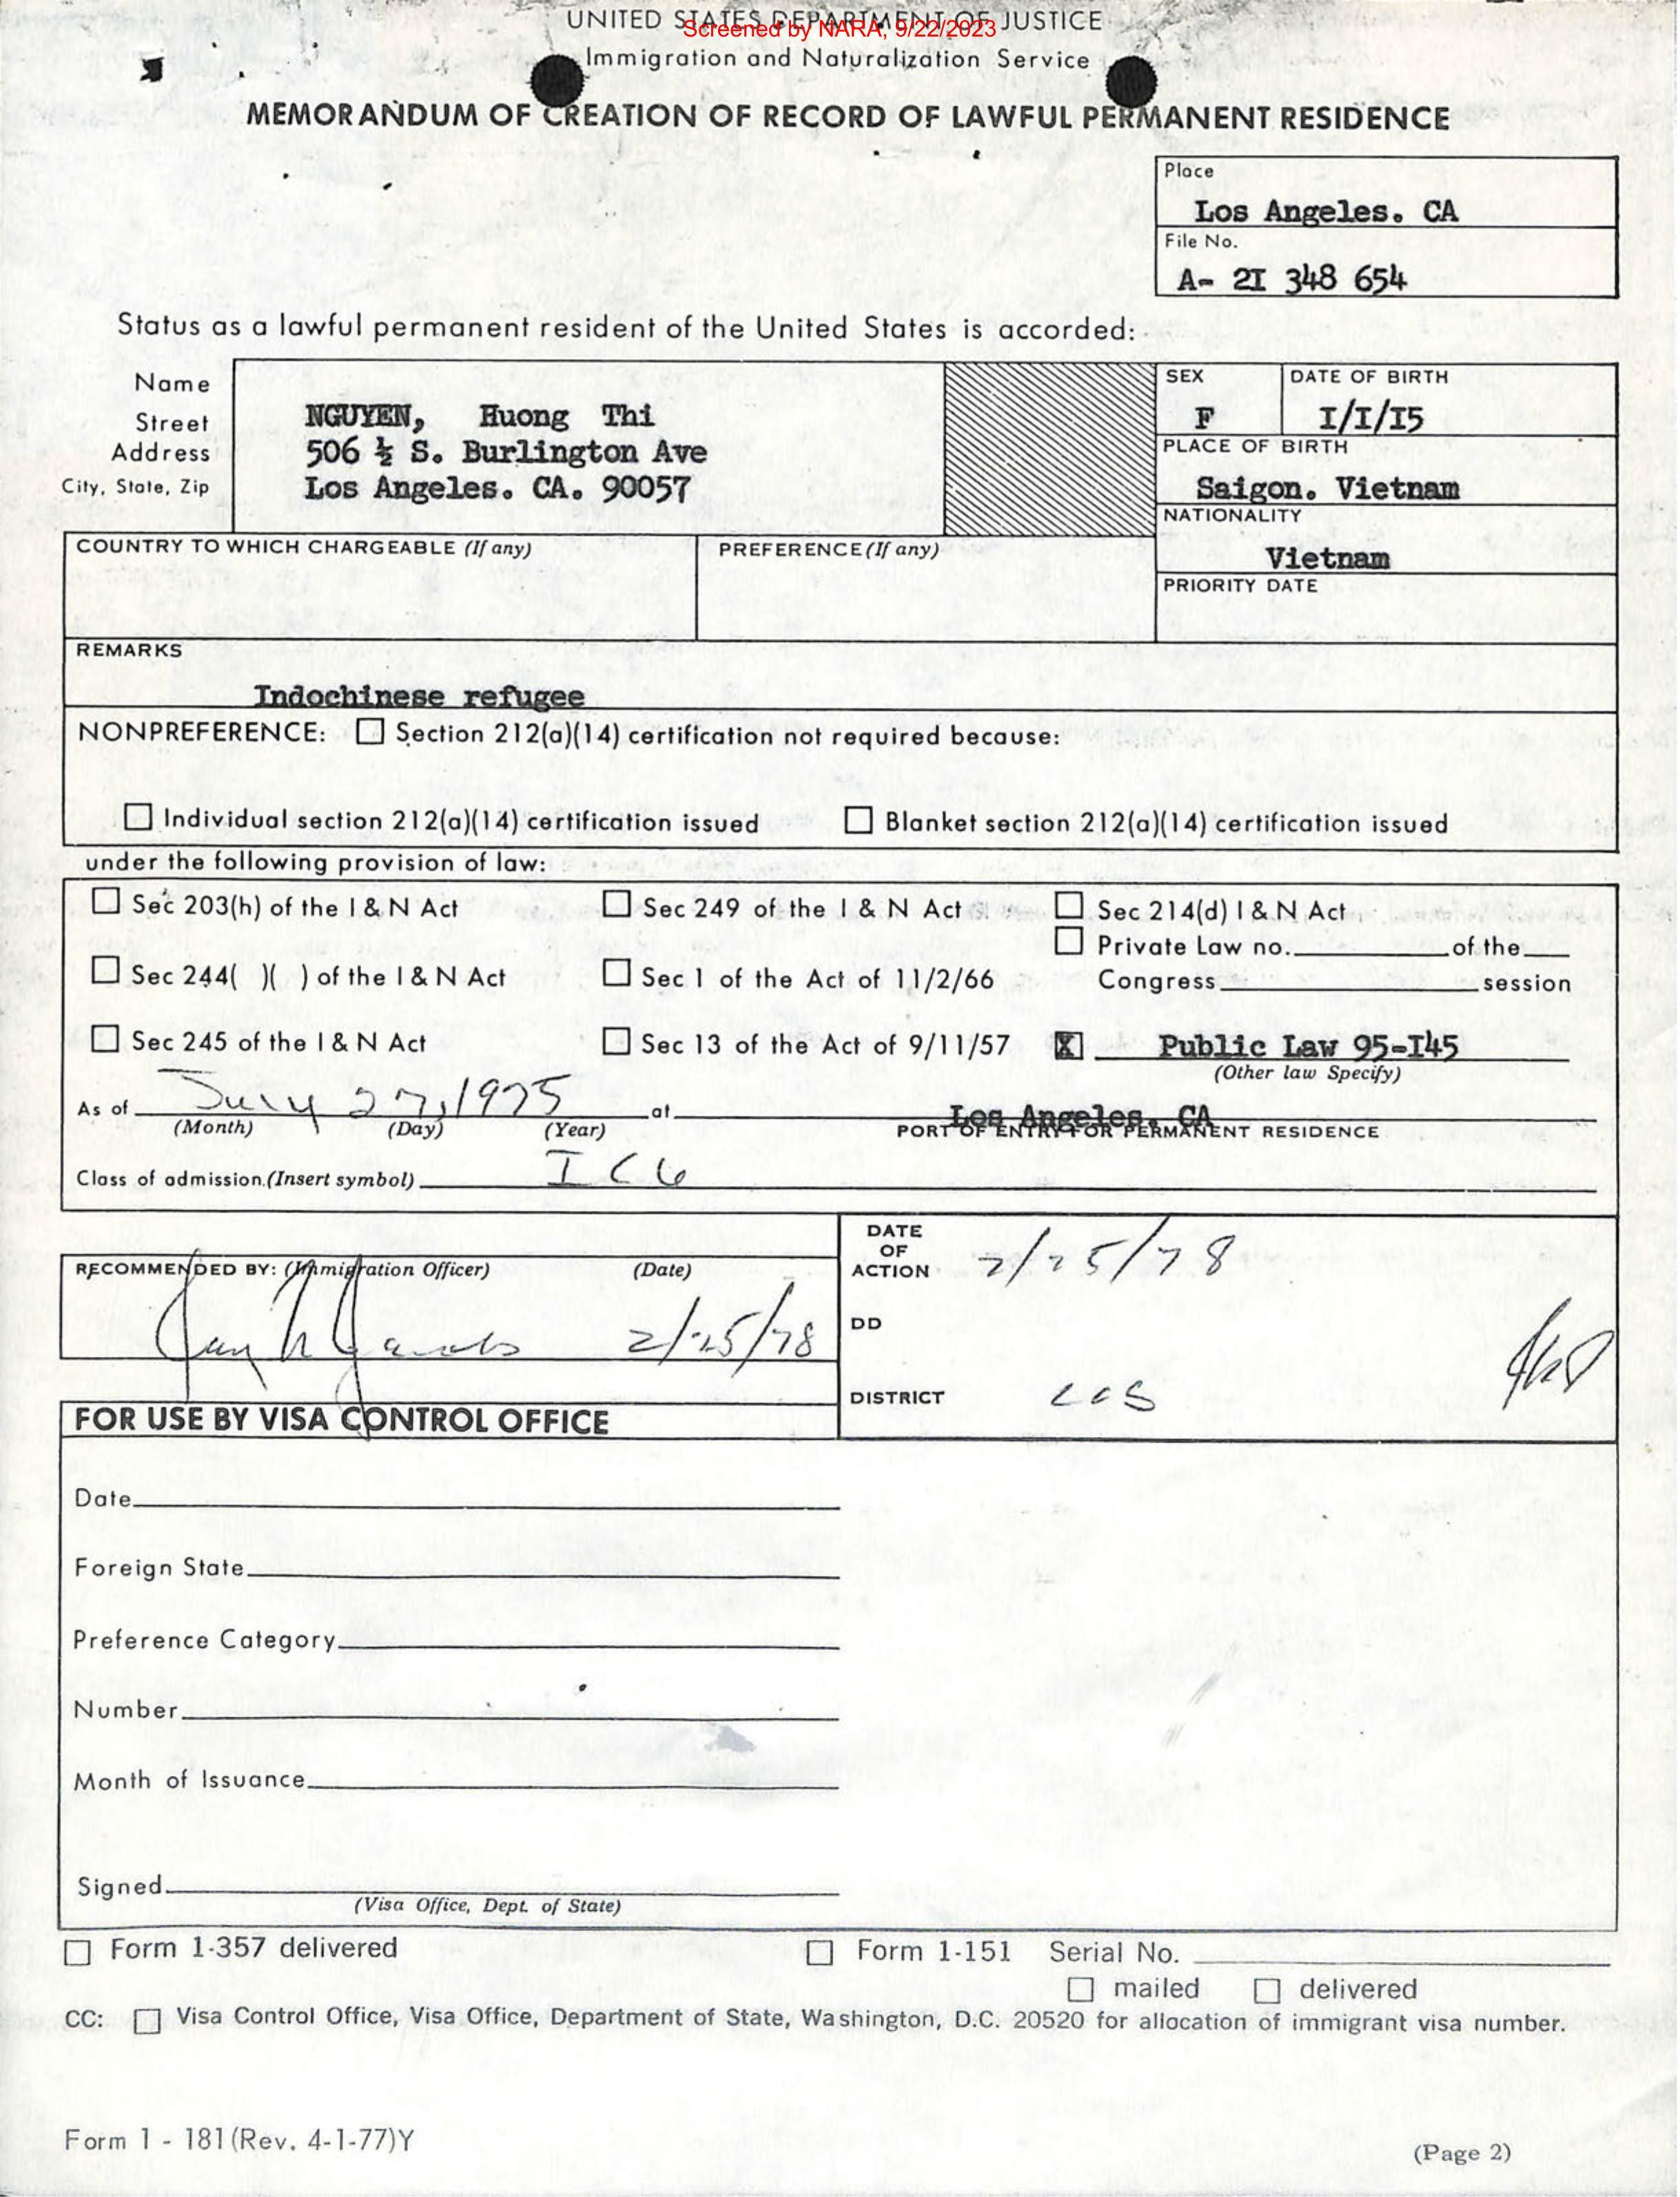 UNITED STATES DEPARTMENT OF JUSTICE
Screened by NARA, 9/22/2023
Immigration and Naturalization Service
MEMORANDUM OF CREATION OF RECORD OF LAWFUL PERMANENT RESIDENCE
Place
Los Angeles. CA
File No.
A- 2I 348 654
Status as a lawful permanent resident of the United States is accorded:
Name
Street
Address
City, State, Zip
NGUYEN, Huong Thi
506 ½ S. Burlington Ave
Los Angeles. CA. 90057
SEX
F
DATE OF BIRTH
I/I/I5
PLACE OF BIRTH
Saigon. Vietnam
NATIONALITY
Vietnam
PRIORITY DATE
COUNTRY TO WHICH CHARGEABLE (If any)
PREFERENCE (If any)
REMARKS
Indochinese refugee
NONPREFERENCE: ☐ Section 212(a)(14) certification not required because:
☐ Individual section 212(a)(14) certification issued ☐ Blanket section 212(a)(14) certification issued
under the following provision of law:
☐ Sec 203(h) of the I & N Act ☐ Sec 249 of the I & N Act ☐ Sec 214(d) I & N Act
☐ Private Law no. of the
☐ Sec 244( )( ) of the I & N Act ☐ Sec 1 of the Act of 11/2/66 Congress session
☐ Sec 245 of the I & N Act ☐ Sec 13 of the Act of 9/11/57 X Public Law 95-I45
(Other law Specify)
As of July 27, 1975 at Los Angeles, CA
(Month) (Day) (Year) PORT OF ENTRY FOR PERMANENT RESIDENCE
Class of admission (Insert symbol) IC6
RECOMMENDED BY: (Immigration Officer) (Date)
2/25/78
DATE OF ACTION 2/25/78
DD
DISTRICT LOS
FOR USE BY VISA CONTROL OFFICE
Date
Foreign State
Preference Category
Number
Month of Issuance
Signed
(Visa Office, Dept. of State)
☐ Form 1-357 delivered ☐ Form 1-151 Serial No.
☐ mailed ☐ delivered
CC: ☐ Visa Control Office, Visa Office, Department of State, Washington, D.C. 20520 for allocation of immigrant visa number.
Form 1 - 181 (Rev. 4-1-77)Y
(Page 2)